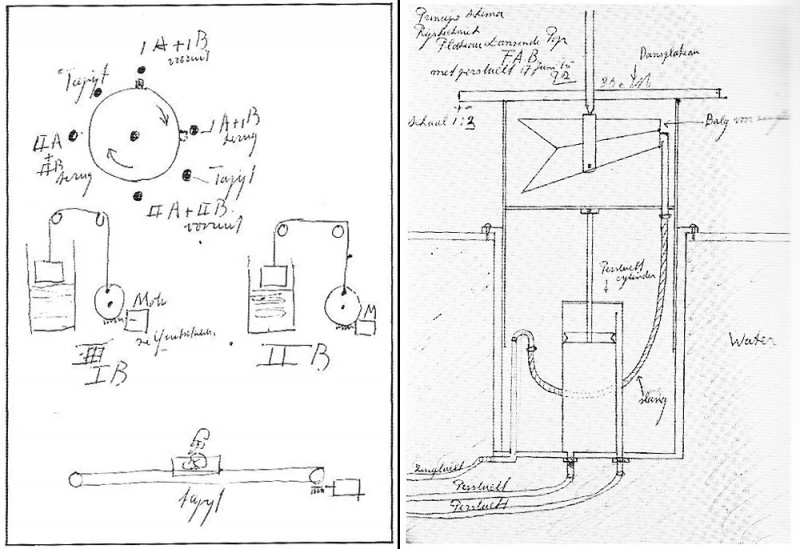 I A + I B
vooruit
Tapijt
I A + I B
terug
II A
+
II B
terug
Tapijt
II A + II B
vooruit
Mot
M
III
I B
II B
tapijt
Principe schema
Plateau dansende
F.A.B.
met perslucht 17 juni
Dansplateau
schaal 1:3
Balg
Perslucht
cylinder
Water
slang
Zuiglucht
Perslucht
Perslucht